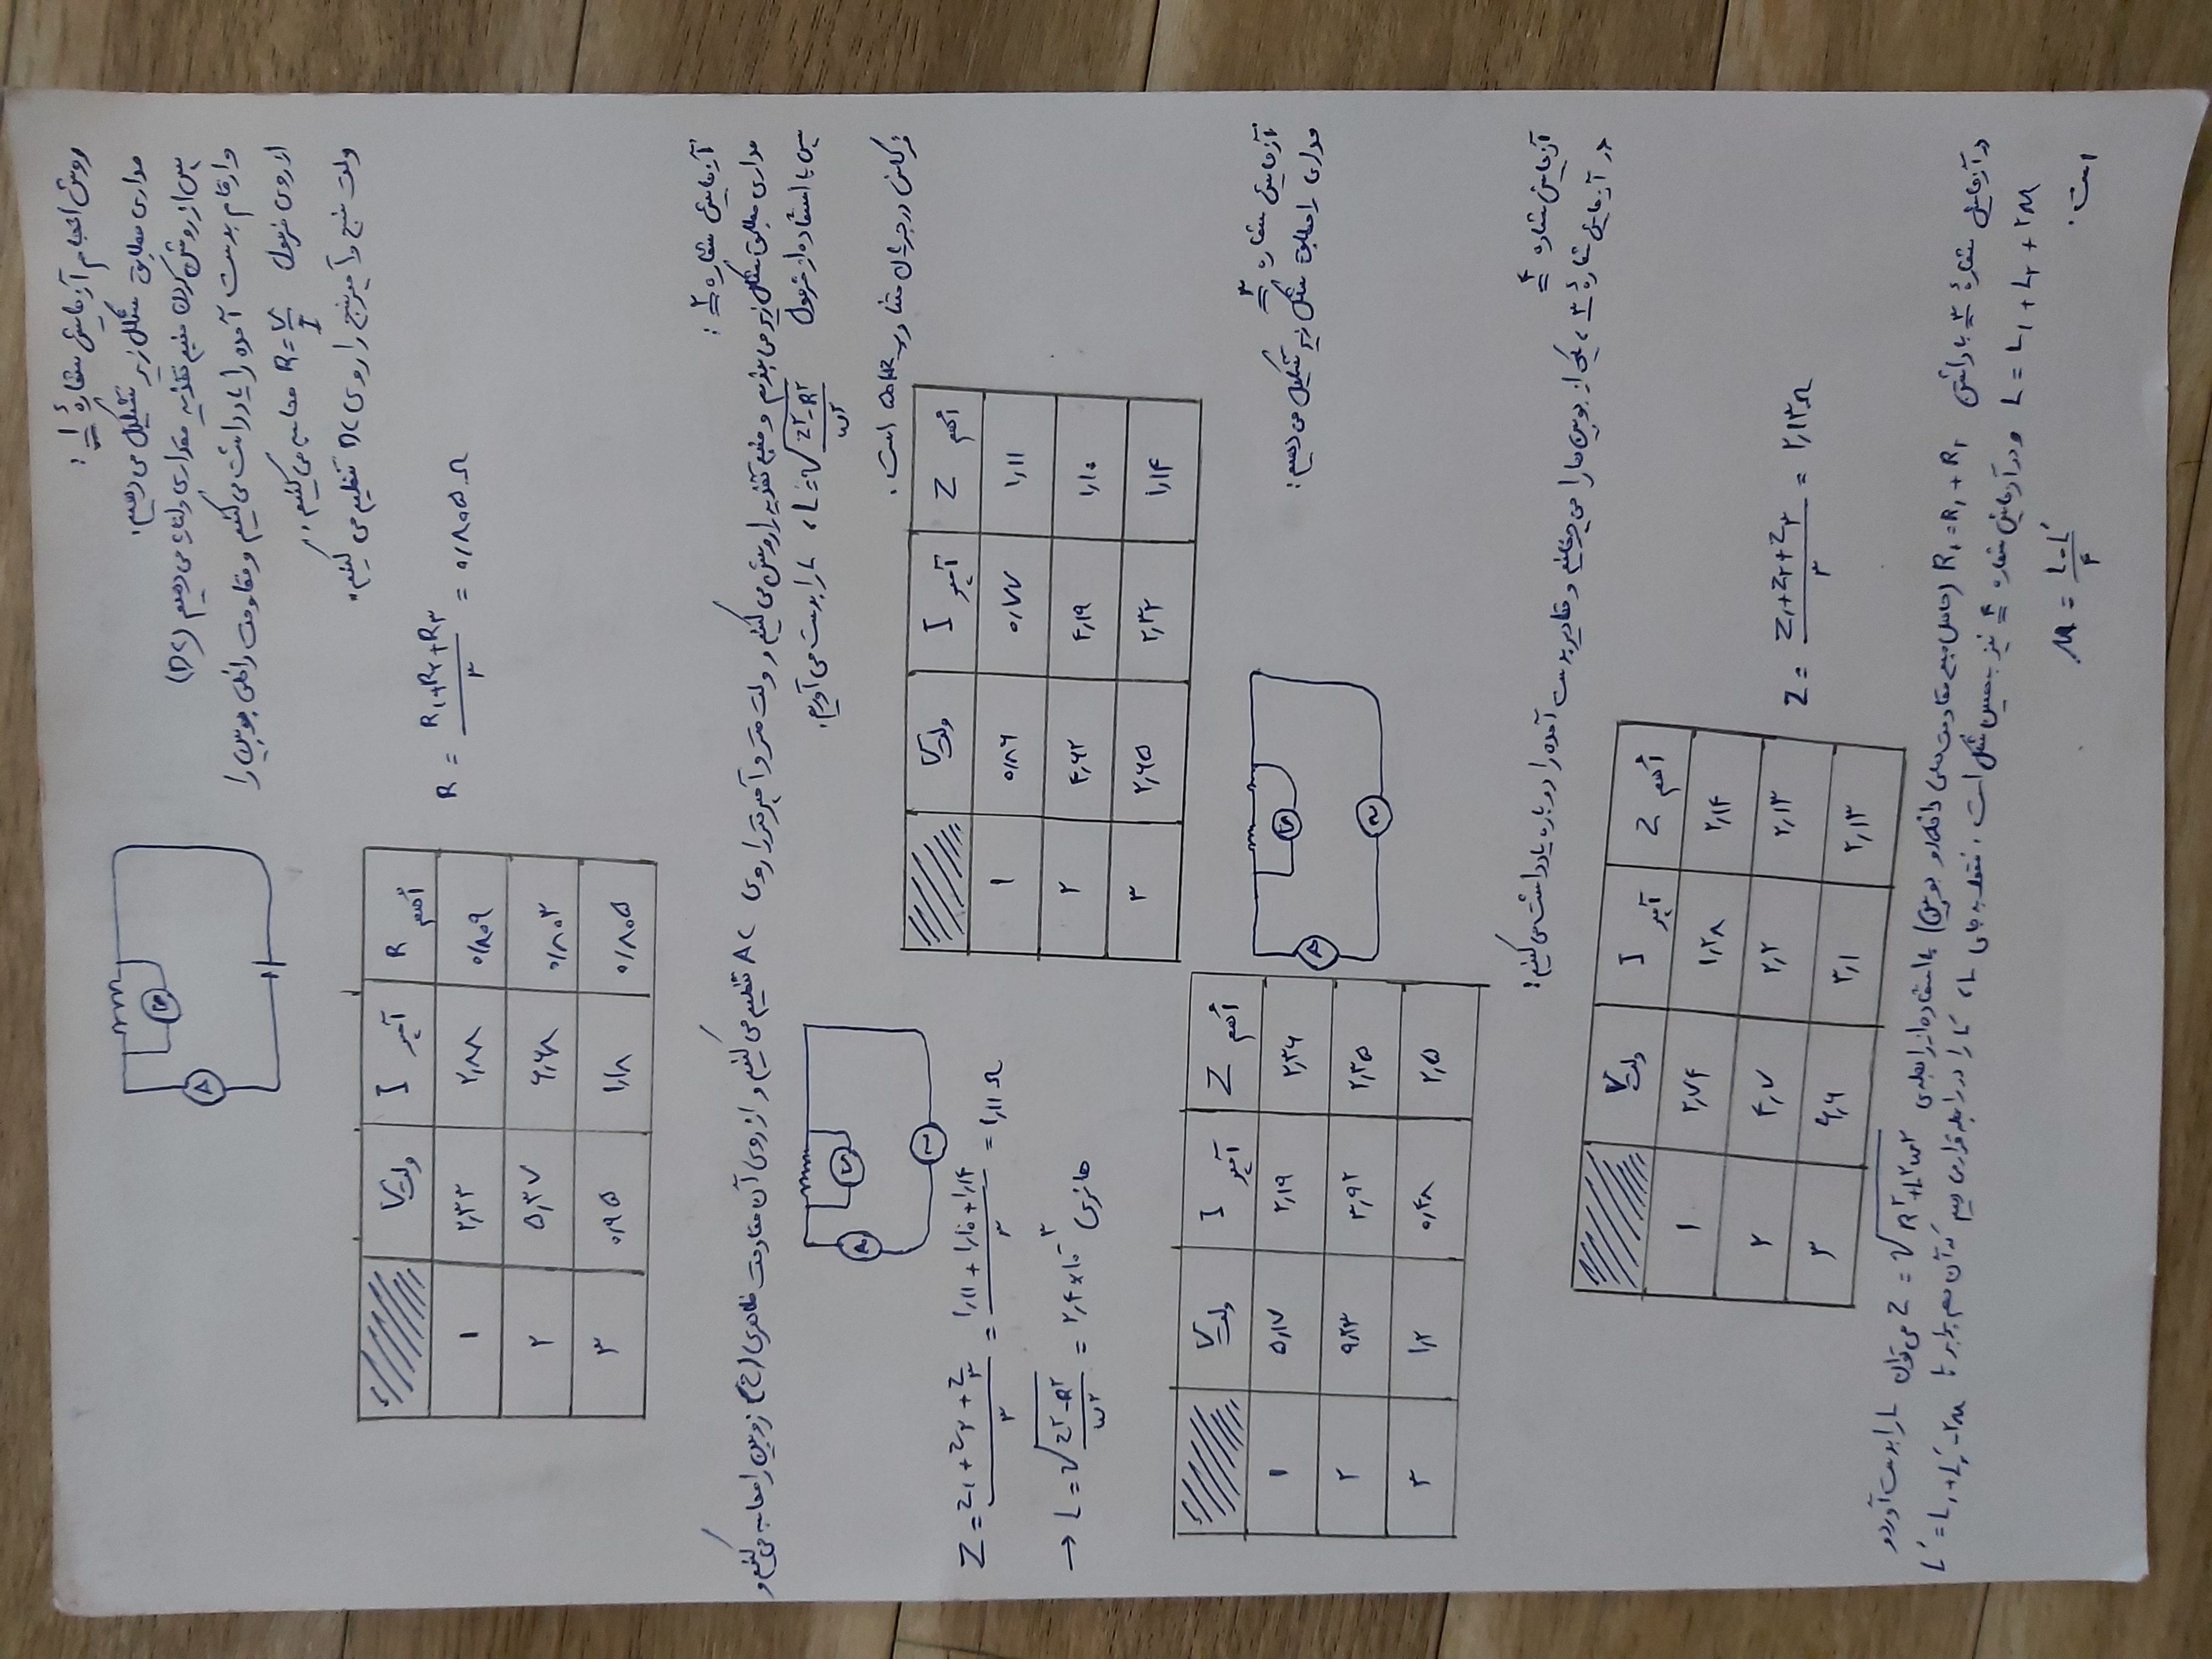 روش انجام آزمایش شمارهٔ ۱ :
مداری مطابق شکل زیر تشکیل می دهیم.
پس از روشن کردن منبع تغذیه مقداری ولتاژ می دهیم (DC)
و ارقام بدست آمده را یادداشت می کنیم و مقاومت داخلی بوبین را
از روی فرمول R=V/I محاسبه می کنیم.
ولت سنج و آمپرسنج را روی DC تنظیم می کنیم.
V
A
ولت V | آمپر I | اُهم R
۱ | ۲,۳۳ | ۲,۸۸ | ۰/۸۰۹
۲ | ۵,۳۷ | ۶,۶۸ | ۰/۸۰۳
۳ | ۰,۹۵ | ۱,۱۸ | ۰/۸۰۵
R = (R۱+R۲+R۳)/۳ = ۰/۸۰۵ Ω
آزمایش شماره ۲ :
مداری مطابق شکل زیر می بندیم و منبع تغذیه را روشن می کنیم و ولت متر و آمپرمتر را روی AC تنظیم می کنیم و از روی آن مقاومت ظاهری (Z) بوبین را محاسبه می کنیم و
سپس با استفاده از فرمول L=√((Z۲-R۲)/ω۲) ، L را بدست می آوریم.
فرکانس در جریان متناوب ۵۰Hz است.
V
A
~
ولت V | آمپر I | اُهم Z
۱ | ۰,۸۶ | ۰,۷۷ | ۱,۱۱
۲ | ۴,۶۲ | ۴,۱۹ | ۱,۱۰
۳ | ۲,۶۵ | ۲,۳۲ | ۱,۱۴
Z = (Z۱+Z۲+Z۳)/۳ = (۱,۱۱+۱,۱۰+۱,۱۴)/۳ = ۱,۱۱ Ω
→ L = √((Z۲-R۲)/ω۲) = ۲,۴×۱۰-۳ هانری
آزمایش شماره ۳
مداری را مطابق شکل زیر تشکیل می دهیم:
V
A
~
ولت V | آمپر I | اُهم Z
۱ | ۵,۱۷ | ۲,۱۹ | ۲,۳۶
۲ | ۹,۲۳ | ۳,۹۲ | ۲,۳۵
۳ | ۱,۲ | ۰,۴۸ | ۲,۵
آزمایش شماره ۴
در آزمایش شمارهٔ ۳ ، یکی از بوبین ها را می چرخانیم و مقادیر بدست آمده را دوباره یادداشت می کنیم:
ولت V | آمپر I | اُهم Z
۱ | ۲,۷۴ | ۱,۲۸ | ۲,۱۴
۲ | ۴,۷ | ۲,۲ | ۲,۱۳
۳ | ۶,۶ | ۳,۱ | ۲,۱۳
Z = (Z۱+Z۲+Z۳)/۳ = ۲,۱۳ Ω
در آزمایش شمارهٔ ۳ با داشتن =R۱+R۲ (حاصل جمع مقاومت های داخلی دو بوبین) با استفاده از رابطه ی Z=√(R۲+L۲ω۲) می توان L را بدست آورد و
L = L۱ + L۲ + ۲M و در آزمایش شماره ۴ نیز به همین شکل است. فقط به جای L ، L' را در رابطه قرار می دهیم که آن هم برابر با L' = L۱+L۲-۲M
است.
M = (L-L')/۴